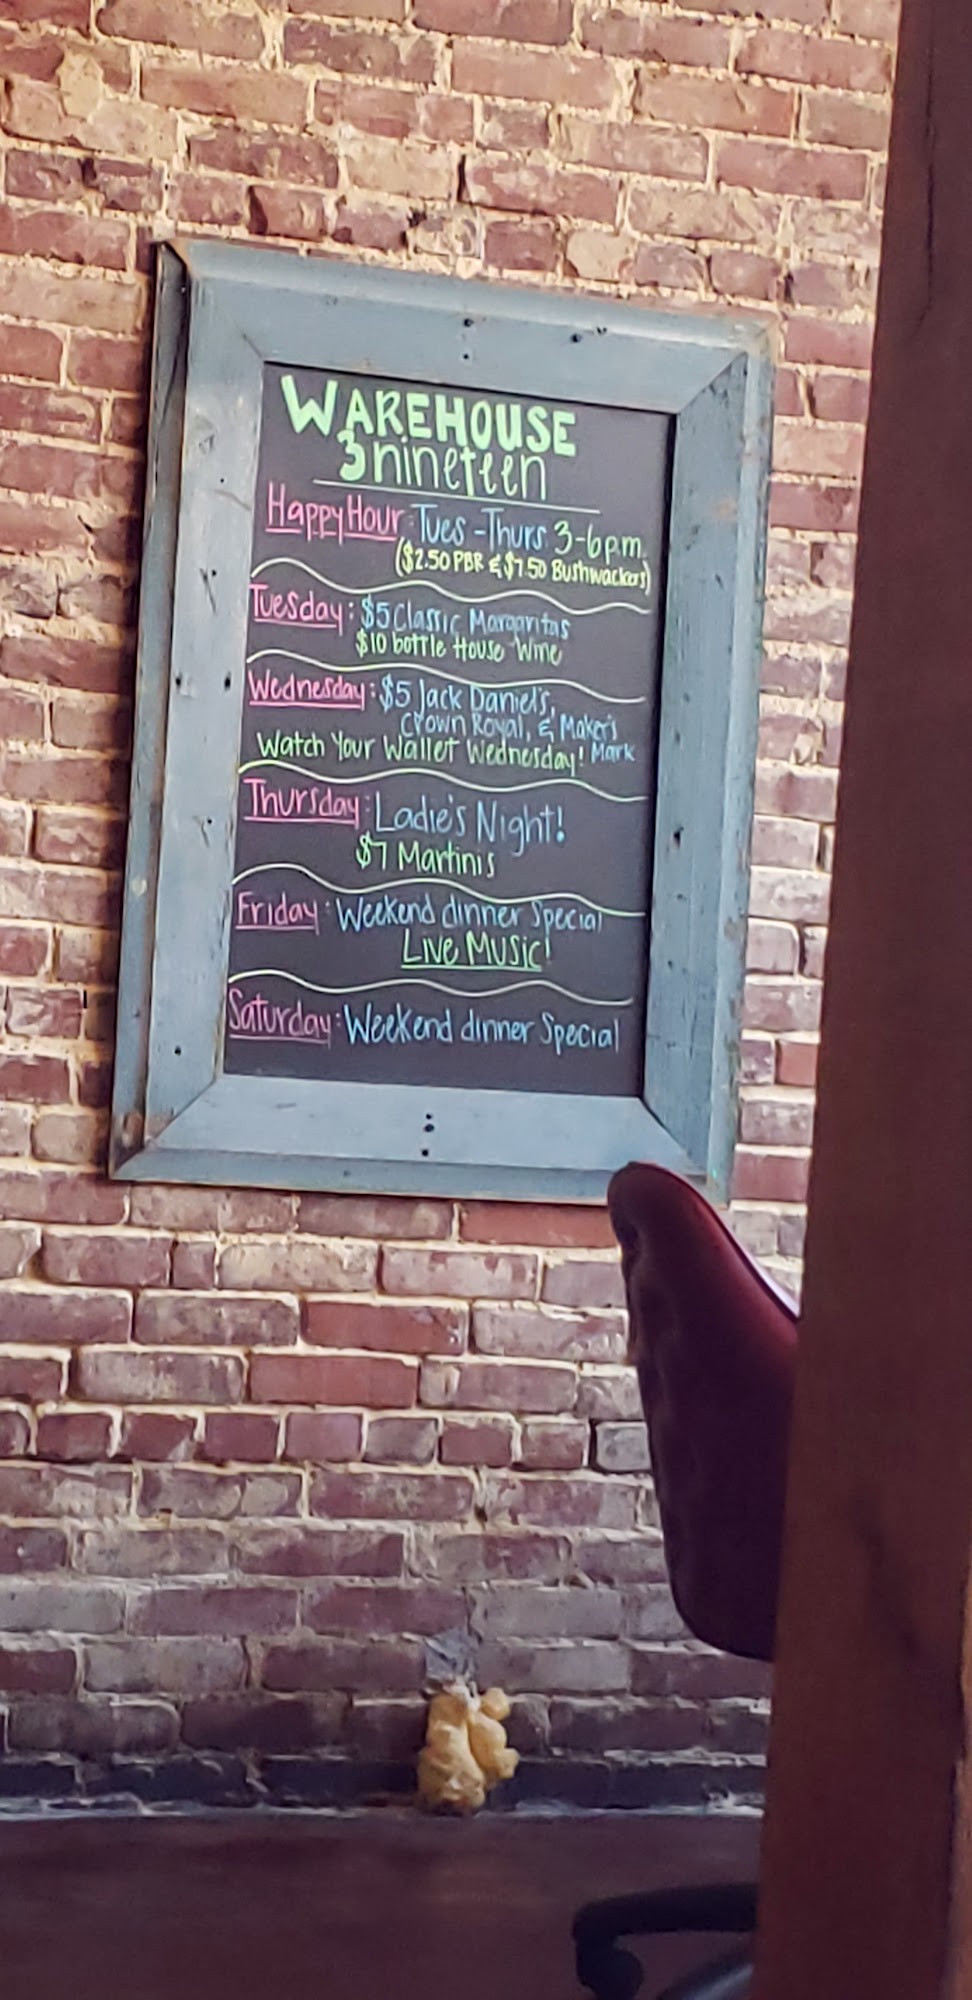 WAREHOUSE
3nineteen
Happy Hour: Tues - Thurs. 3-6p.m.
($2.50 PBR & $7.50 Bushwackers)
Tuesday: $5 Classic Margaritas
$10 bottle House Wine
Wednesday: $5 Jack Daniel's,
Crown Royal, & Maker's
Watch Your Wallet Wednesday! Mark
Thursday: Ladie's Night!
$7 Martinis
Friday: Weekend dinner Special
Live Music!
Saturday: Weekend dinner Special